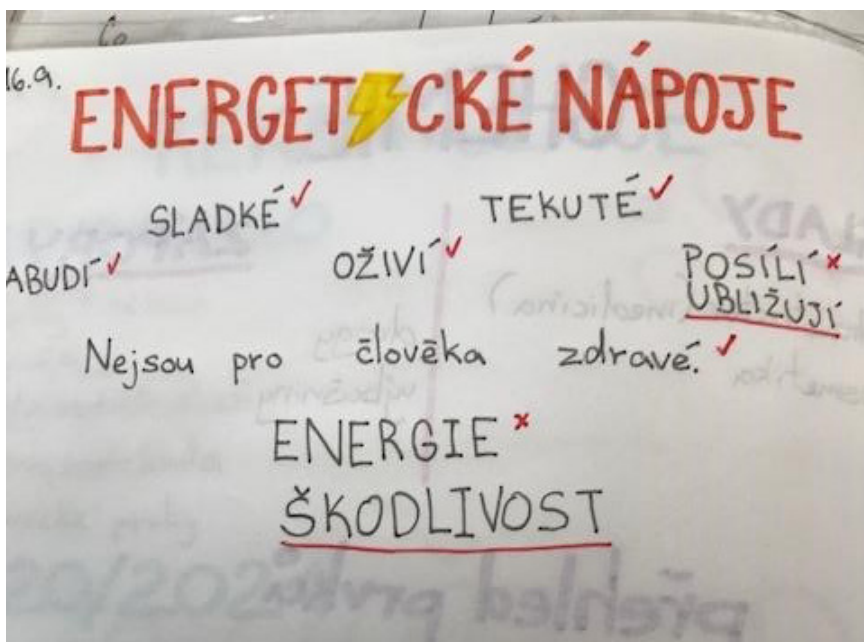 16.9.
ENERGETICKÉ NÁPOJE
SLADKÉ ✓ TEKUTÉ ✓
ABUDÍ ✓ OŽIVÍ ✓ POSÍLÍ ×
UBLIŽUJÍ
Nejsou pro člověka zdravé. ✓
ENERGIE ×
ŠKODLIVOST